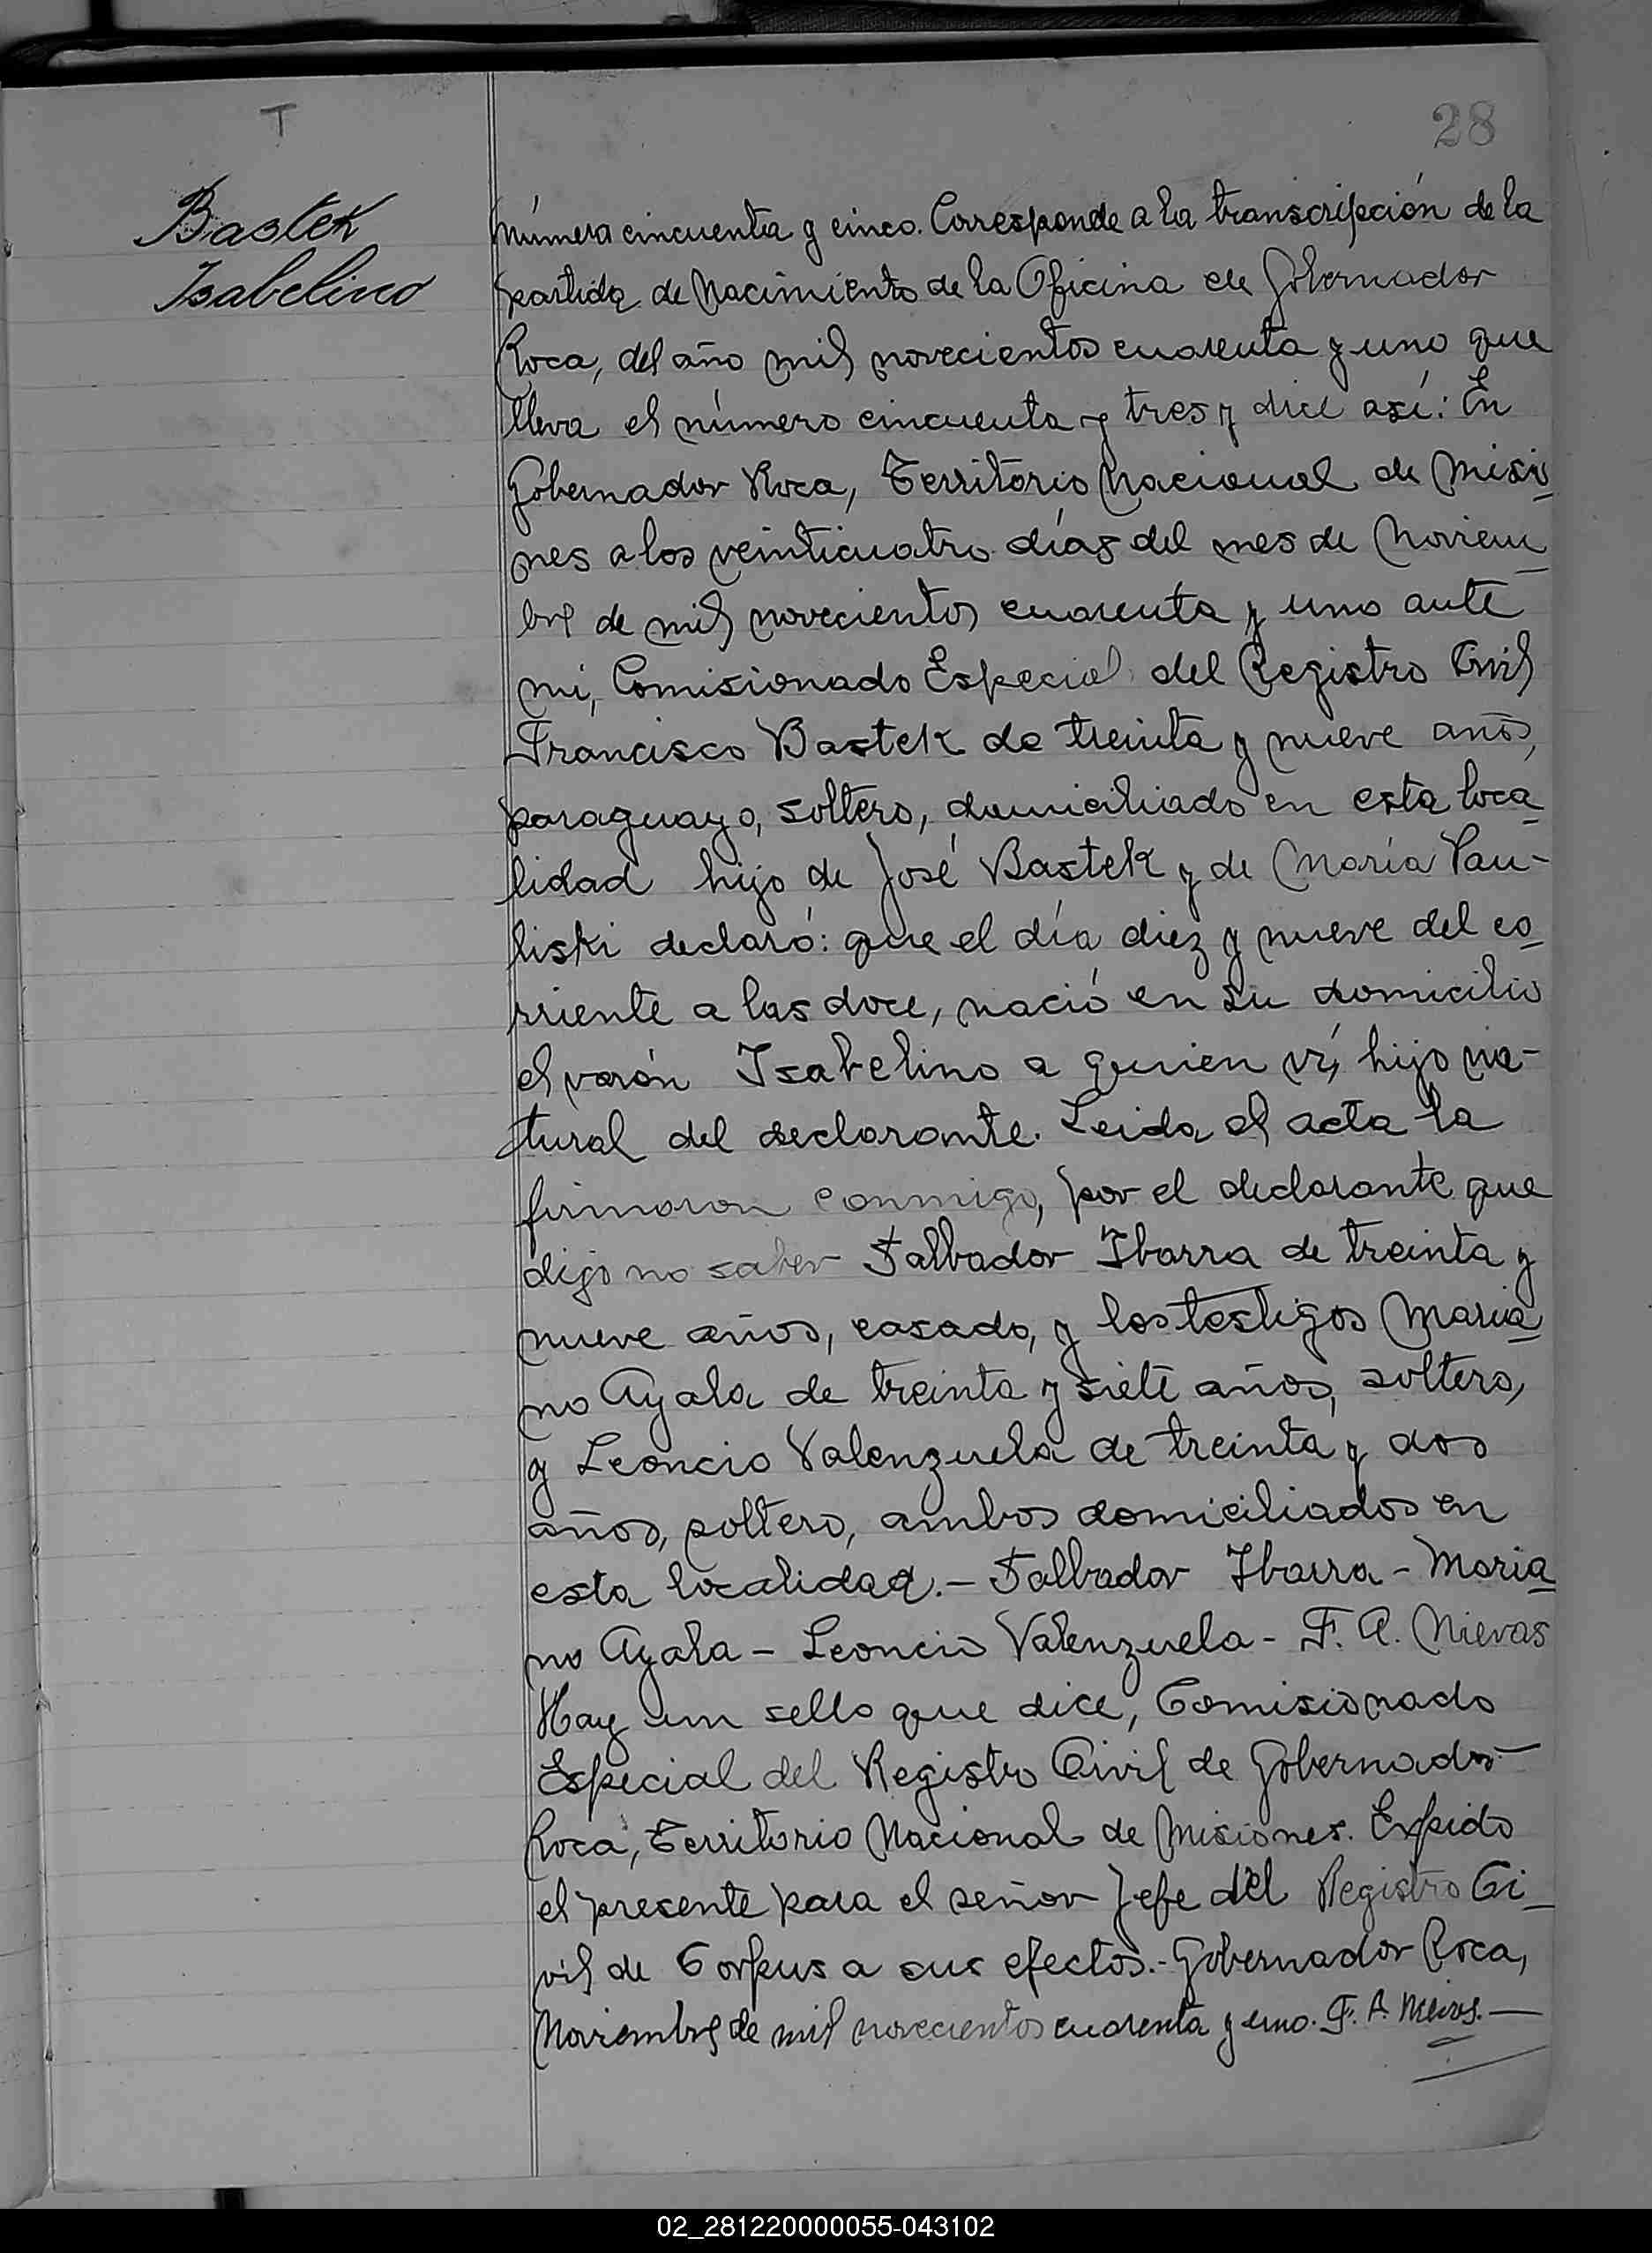 T
28
Bastek
Isabelino
Número cincuenta y cinco. Corresponde a la transcripción de la
partida de Nacimiento de la Oficina de Gobernador
Roca, del año mil novecientos cuarenta y uno que
lleva el número cincuenta y tres y dice así: En
Gobernador Roca, Territorio Nacional de Misio
nes a los veinticuatro días del mes de Noviem
bre de mil novecientos cuarenta y uno ante
mi, Comisionado Especial del Registro Civil
Francisco Bastek de treinta y nueve años,
paraguayo, soltero, domiciliado en esta loca
lidad hijo de José Bastek y de María Pau-
liski declaró: que el día diez y nueve del co
rriente a las doce, nació en su domicilio
el varón Isabelino a quien ví, hijo na-
tural del declarante. Leida el acta la
firmaron conmigo, por el declarante que
dijo no saber Salbador Ibarra de treinta y
nueve años, casado, y los testigos Maria
no Ayala de treinta y siete años, soltero,
y Leoncio Valenzuela de treinta y dos
años, soltero, ambos domiciliados en
esta localidad.- Salbador Ibarra - Maria
no Ayala - Leoncio Valenzuela - F. A. Nievas
Hay un sello que dice, Comisionado
Especial del Registro Civil de Gobernador
Roca, Territorio Nacional de Misiones. Expido
el presente para el señor Jefe del Registro Ci
vil de Corpus a sus efectos.- Gobernador Roca,
Noviembre de mil novecientos cuarenta y uno. F. A. Nievas.-
02_281220000055-043102